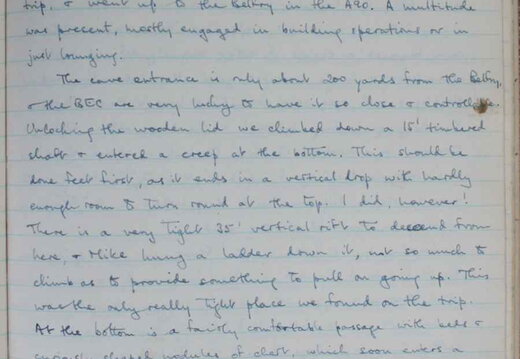 trip, & went up to the Belfry in the A90. A multitude
was present, mostly engaged in building operations or in
just lounging.
The cave entrance is only about 200 yards from the Belfry,
& the BEC are very lucky to have it so close & controllable.
Unlocking the wooden lid we climbed down a 15' timbered
shaft & entered a creep at the bottom. This should be
done feet first, as it ends in a vertical drop with hardly
enough room to turn round at the top. I did, however!
There is a very tight 35' vertical rift to descend from
here, & Mike hung a ladder down it, not so much to
climb as to provide something to pull on going up. This
was the only really tight place we found on the trip.
At the bottom is a fairly comfortable passage with beds &
shaped nodules of chert, which soon enters a